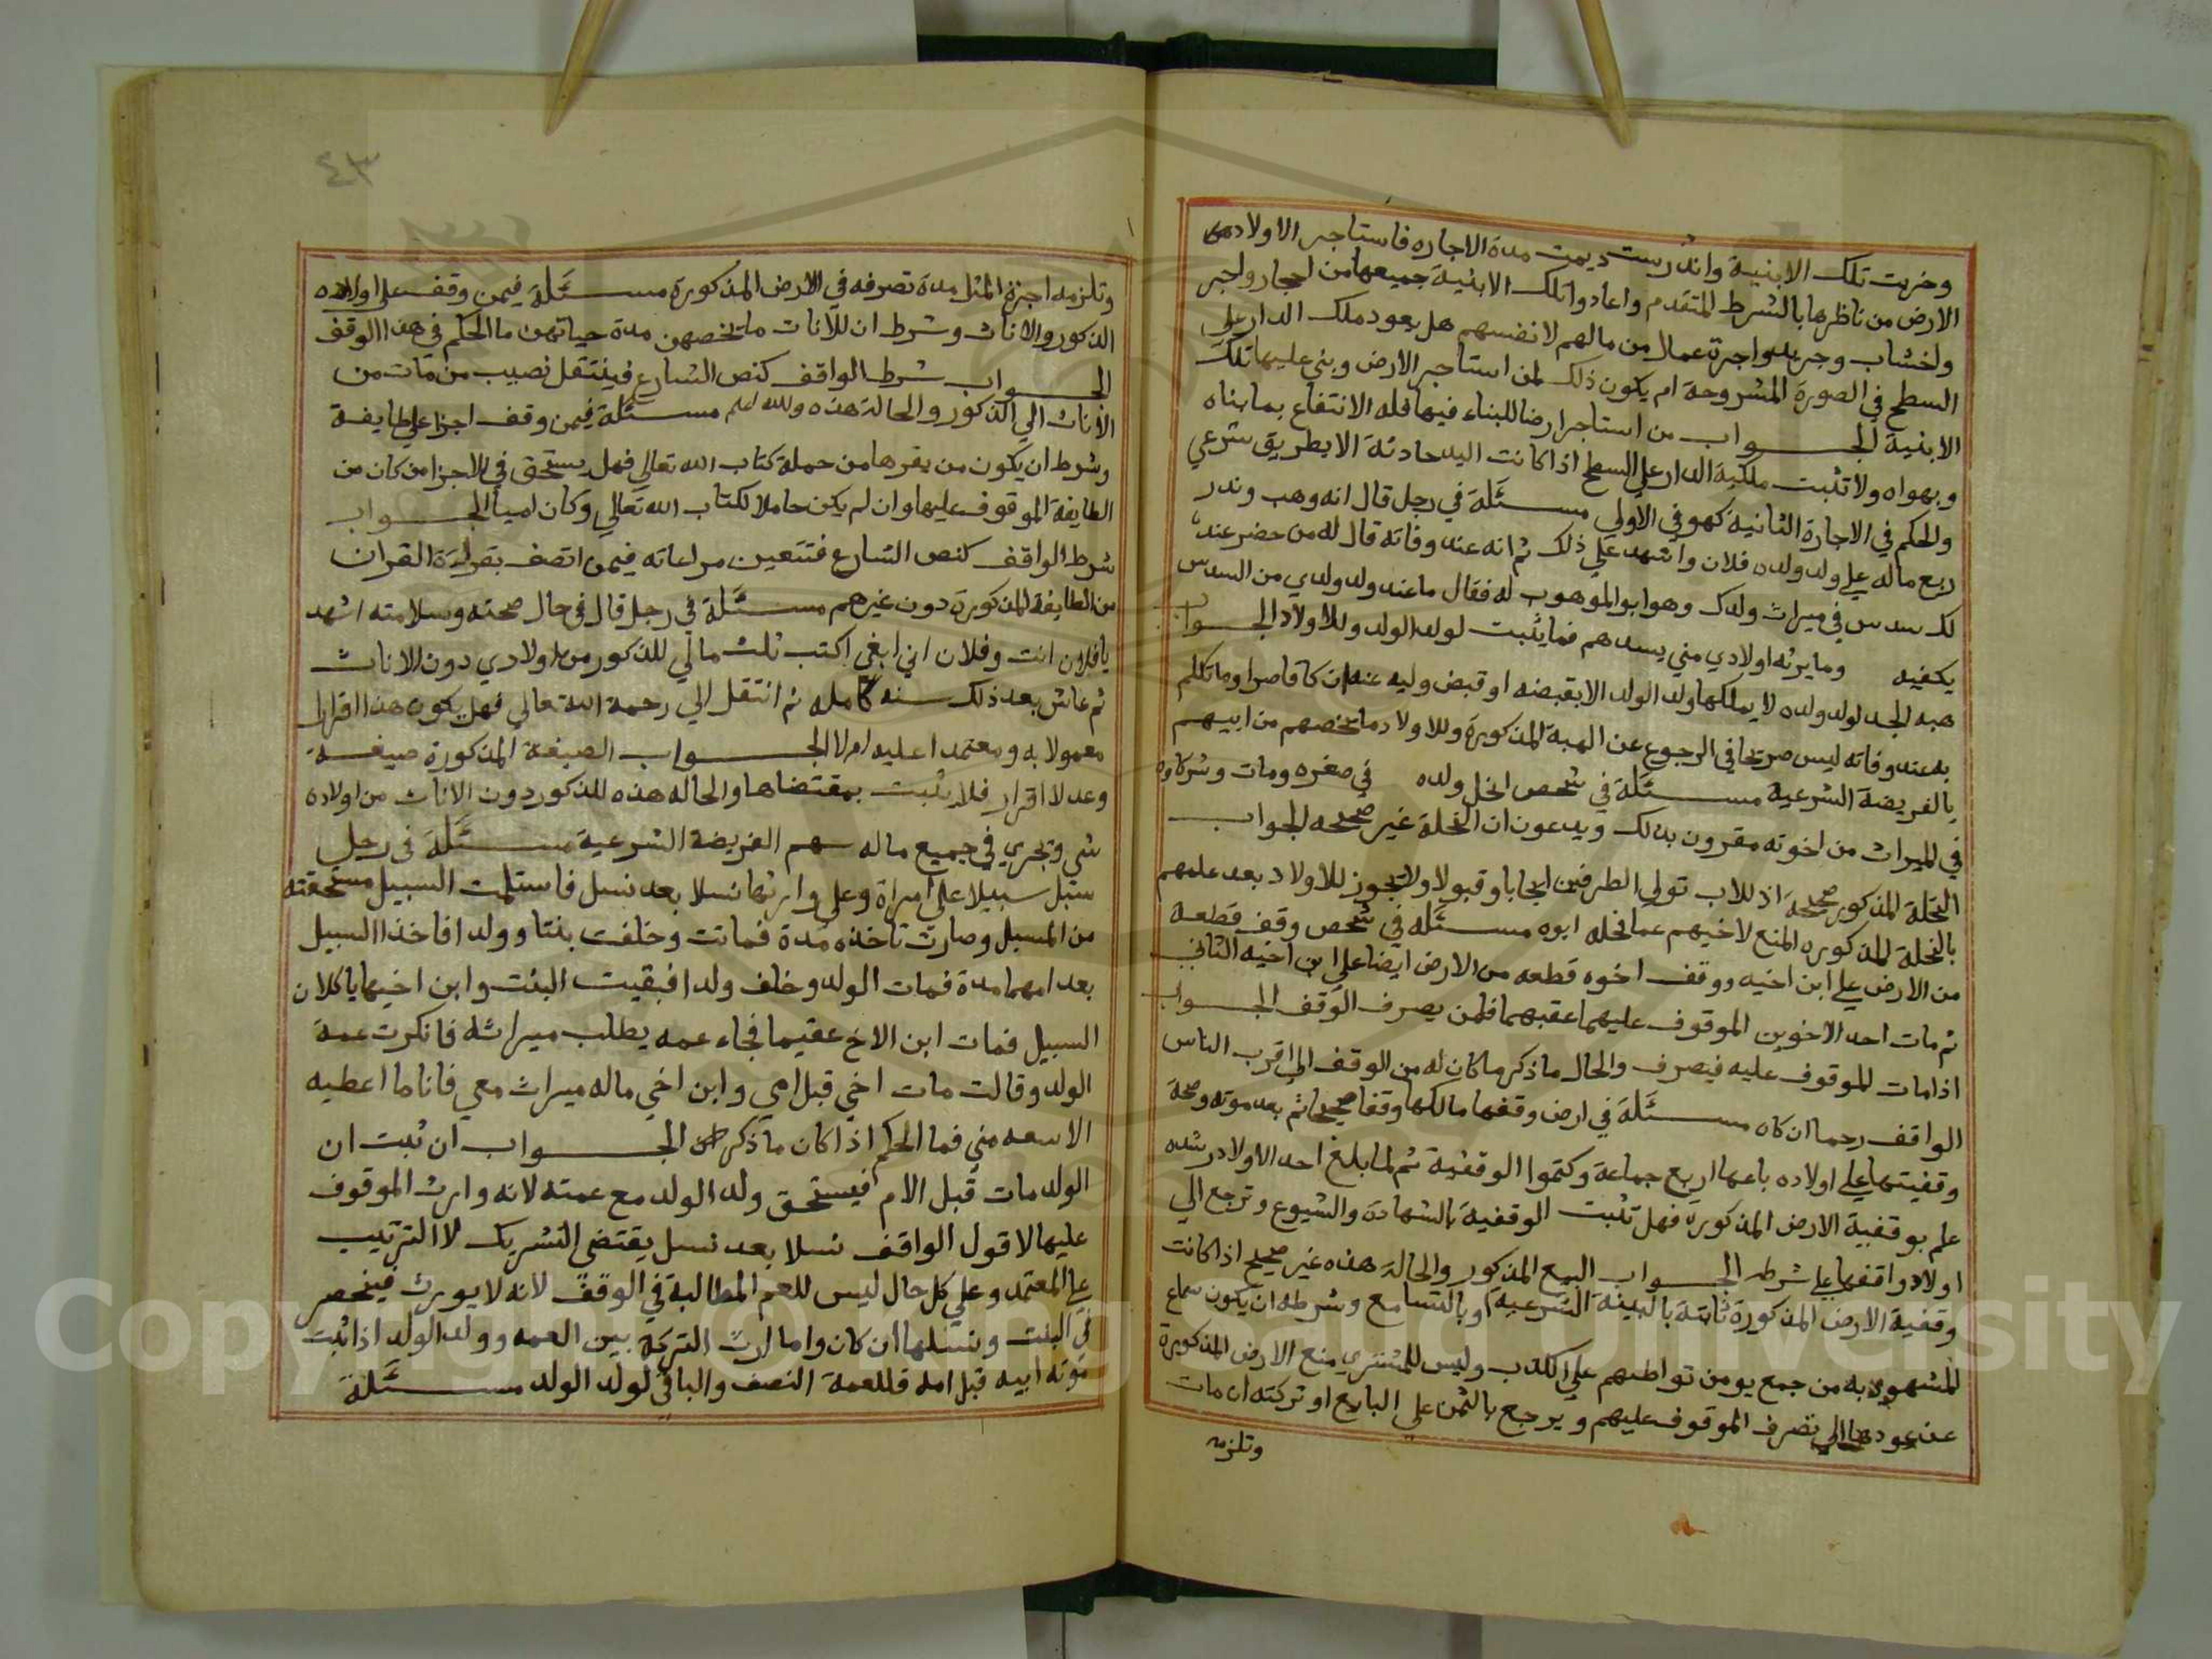 وخربت تلك الابنية واندرست ديمت مدة الاجاره فاستاجر الاولاد
الارض من ناظرها بالشرط المتقدم واعادوا تلك الابنية جميعها من احجار واجر
واخشاب وجريد واجرة عمال من مالهم لانفسهم هل يعود ملك الدار على
السطح في الصورة المشروحة ام يكون ذلك لمن استاجر الارض وبنى عليها تلك
الابنية الجواب من استاجر ارضا للبناء فيها فله الانتفاع بما بناه
وبهواه ولا تثبت ملكية الدار على السطح اذا كانت اليد حادثة الا بطريق شرعي
والحكم في الاجارة الثانيه كهو في الاولي مسئلة في رجل قال انه وهب ونذر
ربع ماله على ولد ولده فلان واشهد علي ذلك ثم انه عند وفاته قال له من حضر عنده
لك سدس في ميراث ولدك وهو ابو الموهوب له فقال ما عند ولد ولدي من السدس
يكفيه وما يرثه اولادي مني يسدهم فما يثبت لولد الولد وللاولاد الجواب
هبه الجد لولد ولده لا يملكها ولد الولد الا بقبضه او قبض وليه عنه ان كا قاصرا وما تكلم
به عند وفاته ليس صريحا في الرجوع عن الهبة المذكورة وللاولاد ما يخصهم من ابيهم
بالفريضة الشرعية مسئلة في شخص انحل ولده في صغره ومات وشركاوه
في الميراث من اخوته مقرون بذلك ويدعون ان النحلة غير صحيحه الجواب
النحلة المذكور صحيحه اذ للاب تولي الطرفين ايجابا وقبولا ولا يجوز للاولاد بعد علمهم
بالنحلة المذكوره المنع لاخيهم عما نحله ابوه مسئله في شخص وقف قطعة
من الارض علي ابن اخيه ووقف اخوه قطعه من الارض ايضا علي ابن اخيه الثاني
ثم مات احد الاخوين الموقوف عليهما عقبهما فلمن يصرف الوقف الجواب
اذا مات الموقوف عليه فيصرف والحال ما ذكر ما كان له من الوقف الي اقرب الناس
الواقف رحما ان كان مسئلة في ارض وقفها مالكها وقفا صحيحا ثم بعد موته وصحة
وقفيتها علي اولاده باعها اربع جماعة وكتموا الوقفية ثم لما بلغ احد الاولاد رشده
علم بوقفية الارض المذكورة فهل تثبت الوقفية بالشهادة والشيوع وترجع الي
اولاد واقفها علي شرطه الجواب البيع المذكور والحالة هذه غير صحيح اذا كانت
وقفية الارض المذكورة ثابتة بالبينة الشرعية او بالتسامع وشرطه ان يكون سماع
المشهود به من جمع يومن تواطيهم علي الكذب وليس للمشتري منع الارض المذكورة
عن عودها الي تصرف الموقوف عليهم ويرجع بالثمن علي البايع او تركته ان مات
وتلزمه
٤٣
وتلزمه اجرة المثل مدة تصرفه في الارض المذكورة مسئلة فيمن وقف على اولاده
الذكور والاناث وشرط ان للاناث ما يخصهن مدة حياتهن ما الحكم في هذا الوقف
الجواب شرط الواقف كنص الشارع فينتقل نصيب من مات من
الاناث الي الذكور والحالة هذه والله اعلم مسئلة فيمن وقف اجزا على طايفة
وشرط ان يكون من يقرها من حملة كتاب الله تعالي فهل يستحق في الاجزا من كان من
الطايفة الموقوف عليها وان لم يكن حاملا لكتاب الله تعالي وكان اميا الجواب
شرط الواقف كنص الشارع فتتعين مراعاته فيمن اتصف بقراءة القران
من الطايفة المذكورة دون غيرهم مسئلة في رجل قال في حال صحته وسلامته اشهد
يا فلان انت وفلان اني ابغي اكتب ثلث مالي للذكور من اولادي دون الاناث
ثم عاش بعد ذلك سنه كامله ثم انتقل الي رحمة الله تعالي فهل يكون هذا اقرارا
معمولا به ومعتمدا عليه ام لا الجواب الصيغة المذكورة صيغة
وعد لا اقرار فلا يثبت بمقتضاها والحاله هذه للذكور دون الاناث من اولاده
شي وتجري في جميع ماله سهم الفريضة الشرعية مسئلة في رجل
سبل سبيلا علي امراة وعلي وارثها نسلا بعد نسل فاستلمت السبيل مستحقته
من المسبل وصارت تاخذه مدة فماتت وخلفت بنتا وولدا فاخذا السبيل
بعد امهما مدة فمات الولد وخلف ولدا فبقيت البنت وابن اخيها ياكلان
السبيل فمات ابن الاخ عقيما فجاء عمه يطلب ميراثه فانكرت عمة
الولد وقالت مات اخي قبل امي وابن اخي ماله ميراث معي فانا ما اعطيه
الا سعه مني فما الحكم اذا كان ما ذكر الجواب ان ثبت ان
الولد مات قبل الام فيستحق ولد الولد مع عمته لانه وارث الموقوف
عليها لا قول الواقف نسلا بعد نسل يقتضي التشريك لا الترتيب
علي المعتمد وعلي كل حال ليس للعم المطالبة في الوقف لانه لا يورث فينحصر
في البنت ونسلها ان كان واما ارث التركة بين العمه وولد الولد اذا ثبت
موته ابيه قبل امه فللعمة النصف والباقي لولد الولد مسئلة
Copyright © King Saud University